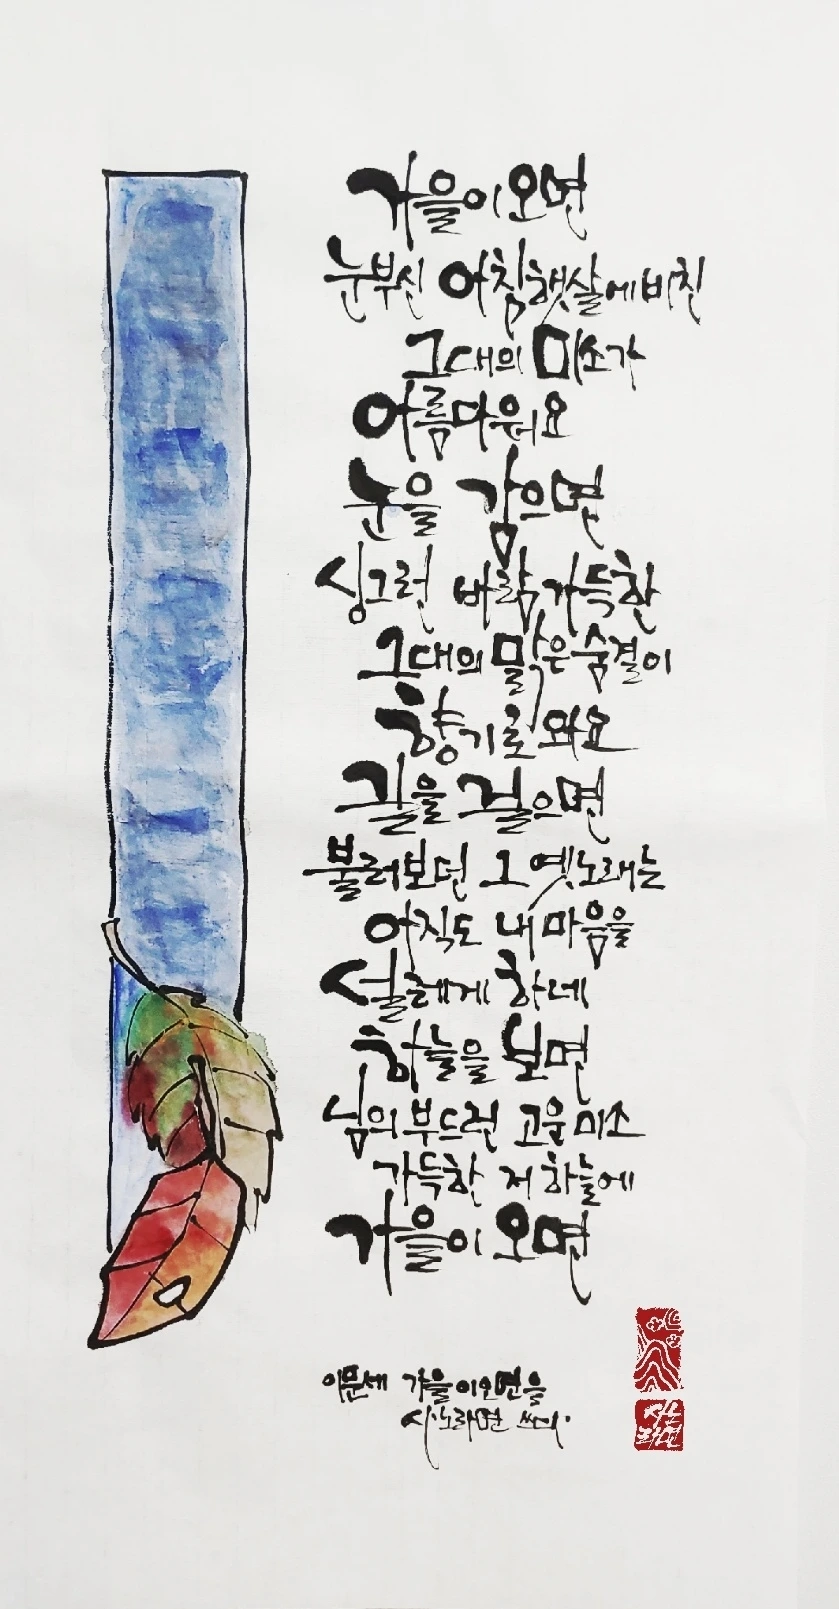 가을이 오면
눈부신 아침 햇살에 비친
그대의 미소가
아름다워요
눈을 감으면
싱그런 바람 가득한
그대의 맑은 숨결이
향기로 와요
길을 걸으면
불러보던 그 옛노래는
아직도 내 마음을
설레게 하네
하늘을 보면
님의 부드런 고운 미소
가득한 저 하늘에
가을이 오면
이문세 가을이오면을